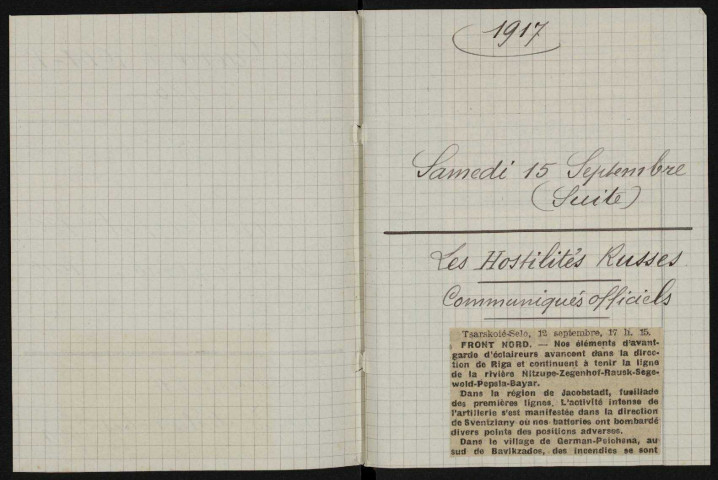 1917
Samedi 15 Septembre
(Suite)
Les Hostilités Russes
Communiqués officiels
Tsarskoïé-Selo, 12 septembre, 17 h. 15.
FRONT NORD. — Nos éléments d'avant-
garde d'éclaireurs avancent dans la direc-
tion de Riga et continuent à tenir la ligne
de la rivière Nitzupe-Zegenhof-Rausk-Sege-
wold-Pepsla-Bayar.
Dans la région de Jacobstadt, fusillade
des premières lignes. L'activité intense de
l'artillerie s'est manifestée dans la direction
de Sventziany où nos batteries ont bombardé
divers points des positions adverses.
Dans le village de German-Peichena, au
sud de Bavikzados, des incendies se sont